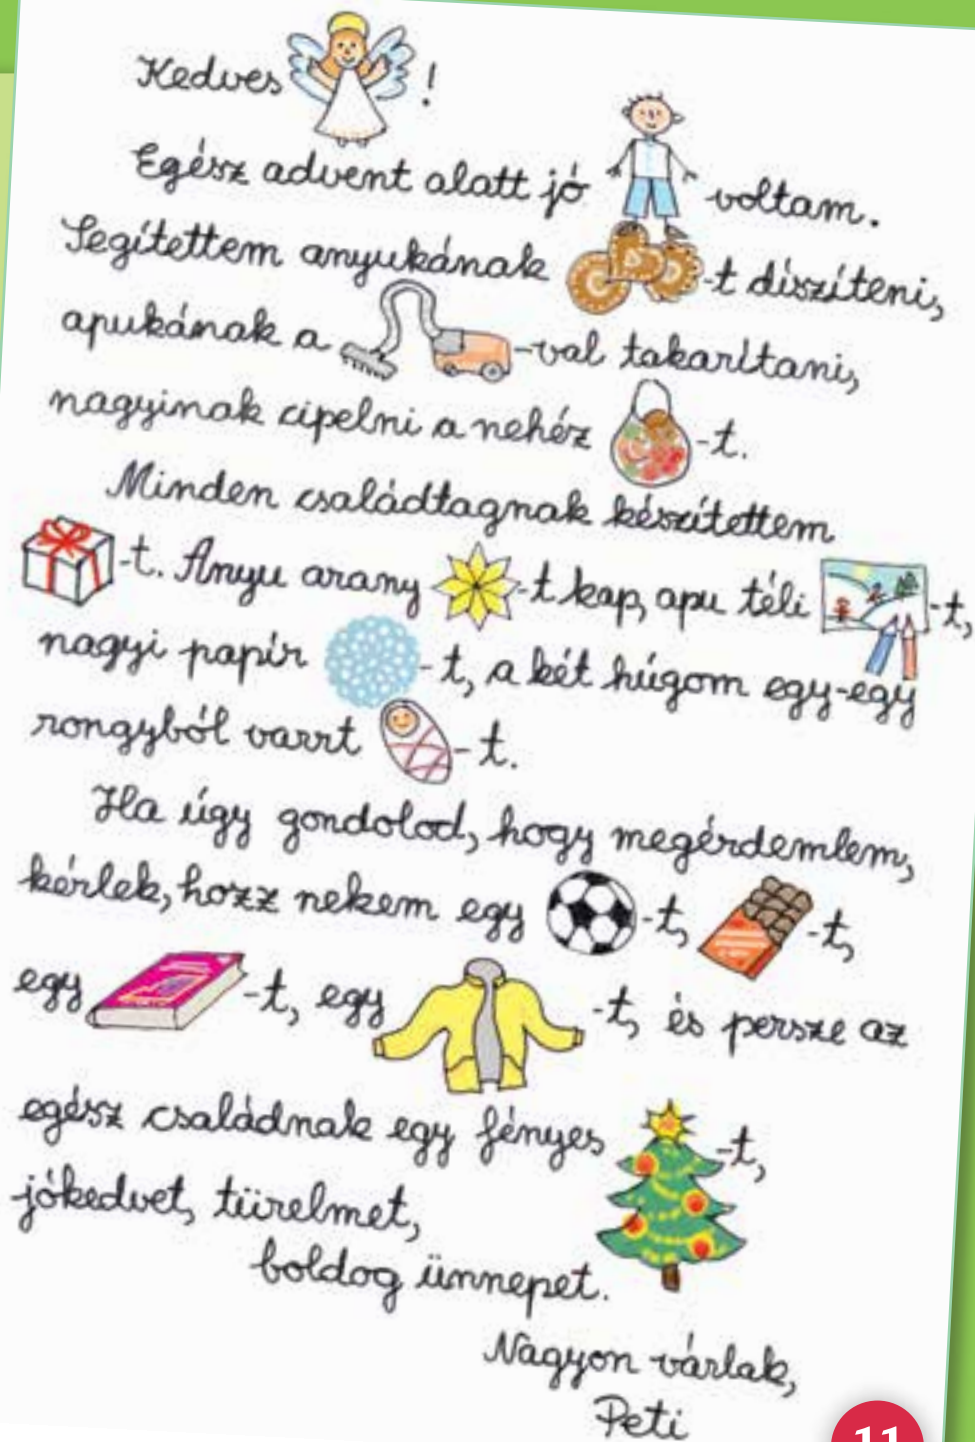 Kedves !
Egész advent alatt jó voltam.
Segítettem anyukának -t díszíteni,
apukának a -val takarítani,
nagyinak cipelni a nehéz -t.
Minden családtagnak készítettem
-t. Anyu arany -t kap, apu téli -t,
nagyi papír -t, a két húgom egy-egy
rongyból varrt -t.
Ha úgy gondolod, hogy megérdemlem,
kérlek, hozz nekem egy -t, -t,
egy -t, egy -t, és persze az
egész családnak egy fényes -t,
jókedvet, türelmet,
boldog ünnepet.
Nagyon várlak,
Peti
11